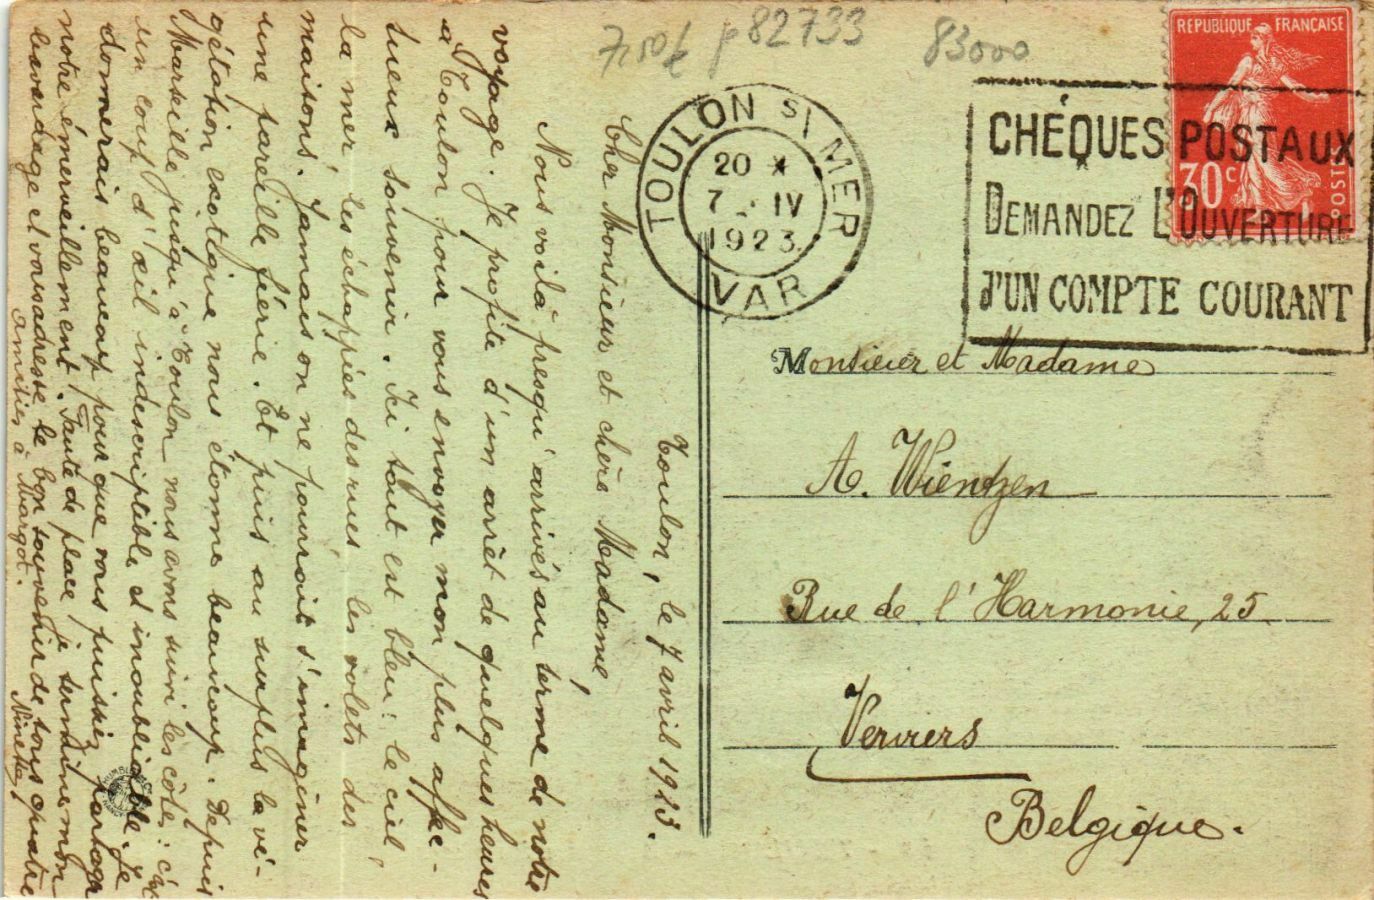 7,50f p 82733 83000
RÉPUBLIQUE FRANÇAISE
30c
POSTES
TOULON S/ MER
20 *
7 - IV
1923
VAR
CHÉQUES POSTAUX
DEMANDEZ L'OUVERTURE
D'UN COMPTE COURANT
Monsieur et Madame
A. Wientzen
Rue de l'Harmonie, 25
Verviers
Belgique.
Toulon, le 7 avril 1923.
Cher Monsieur et chère Madame,
Nous voilà presqu'arrivés au terme de notre
voyage. Je profite d'un arrêt de quelques heures
à Toulon pour vous envoyer mon plus affec-
tueux souvenir. Ici tout est bleu: le ciel,
la mer, les échappées des rues les volets des
maisons. Jamais on ne pourrait s'imaginer
une pareille féerie. Et puis au surplus la vé-
gétation exotique nous étonne beaucoup. Depuis
Marseille jusqu'à Toulon nous avons suivi les côte: c'est
un coup d'œil indescriptible et inoubliable. Je
donnerais beaucoup pour que vous puissiez partager
notre émerveillement. Faute de place je termine mon
bavardage et vous adresse le bon souvenir de tous quatre
amitiés à Margot.